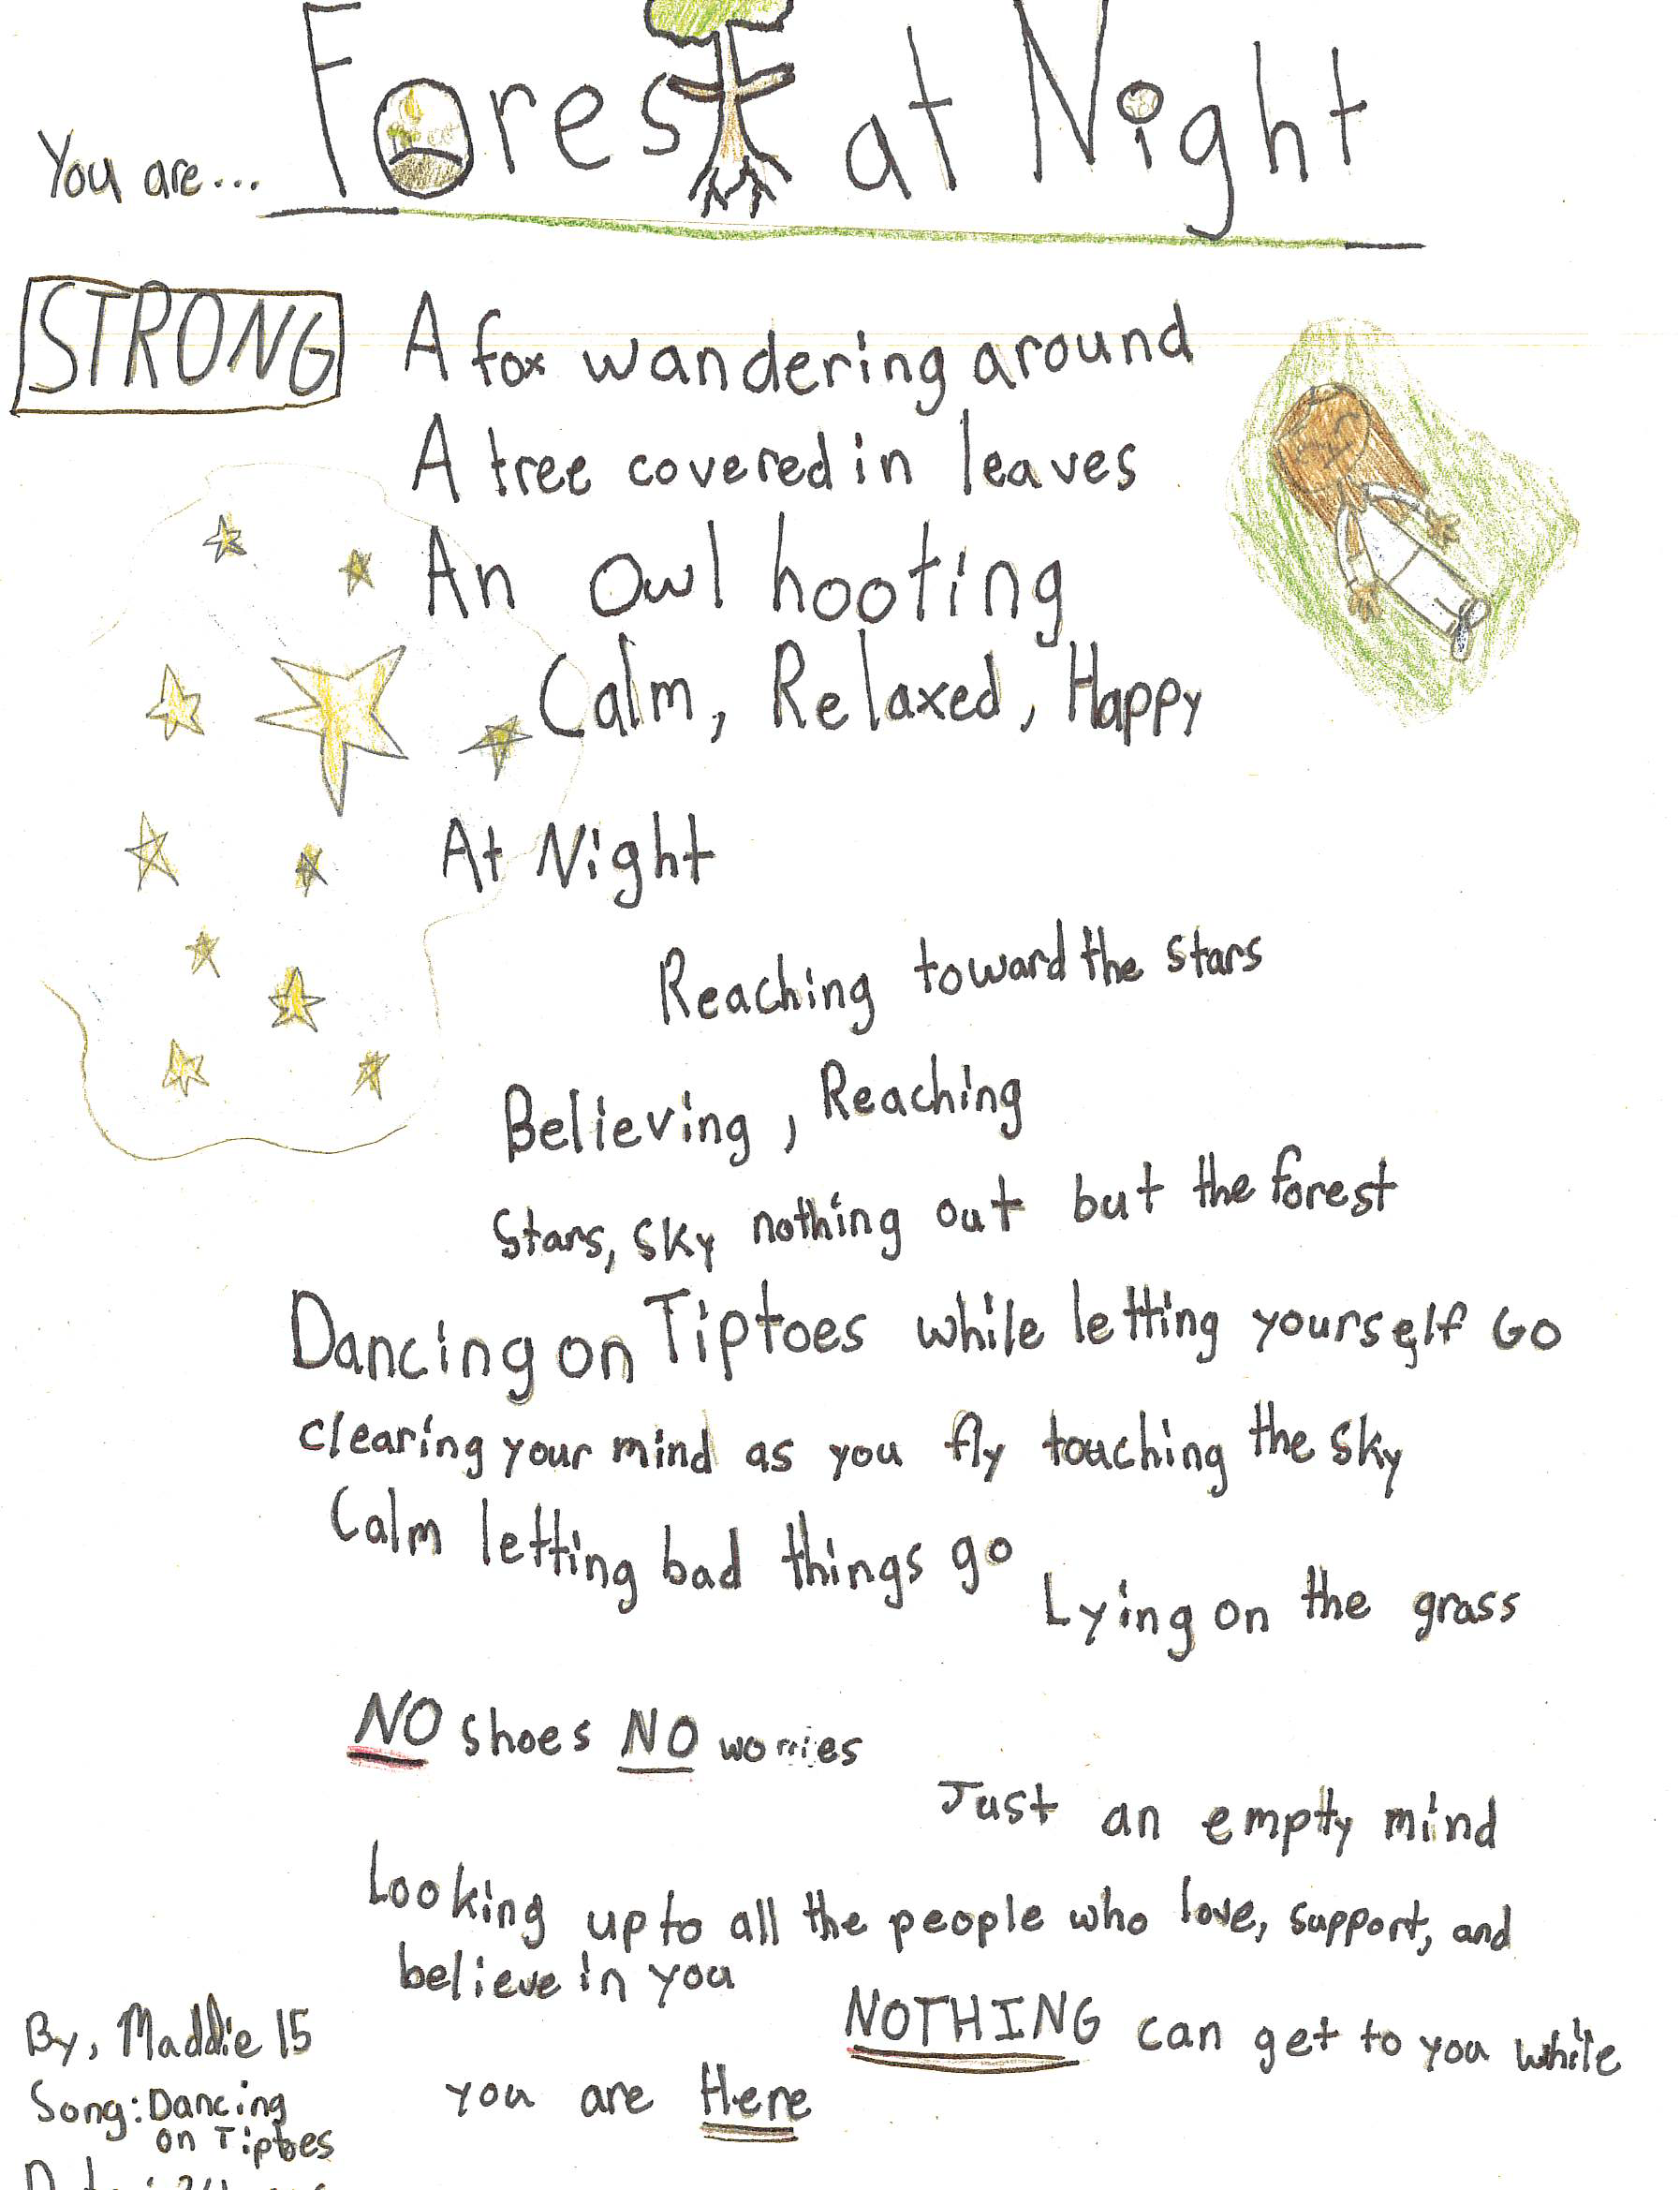 Forest at Night
You are...
STRONG
A fox wandering around
A tree covered in leaves
An Owl hooting
Calm, Relaxed, Happy
At Night
Reaching toward the stars
Believing, Reaching
Stars, sky nothing out but the forest
Dancing on Tiptoes while letting yourself GO
clearing your mind as you fly touching the sky
Calm letting bad things go
Lying on the grass
NO shoes NO worries
Just an empty mind
Looking up to all the people who love, support, and
believe in you
NOTHING can get to you while
you are Here
By, Maddie 15
Song: Dancing
on Tiptoes